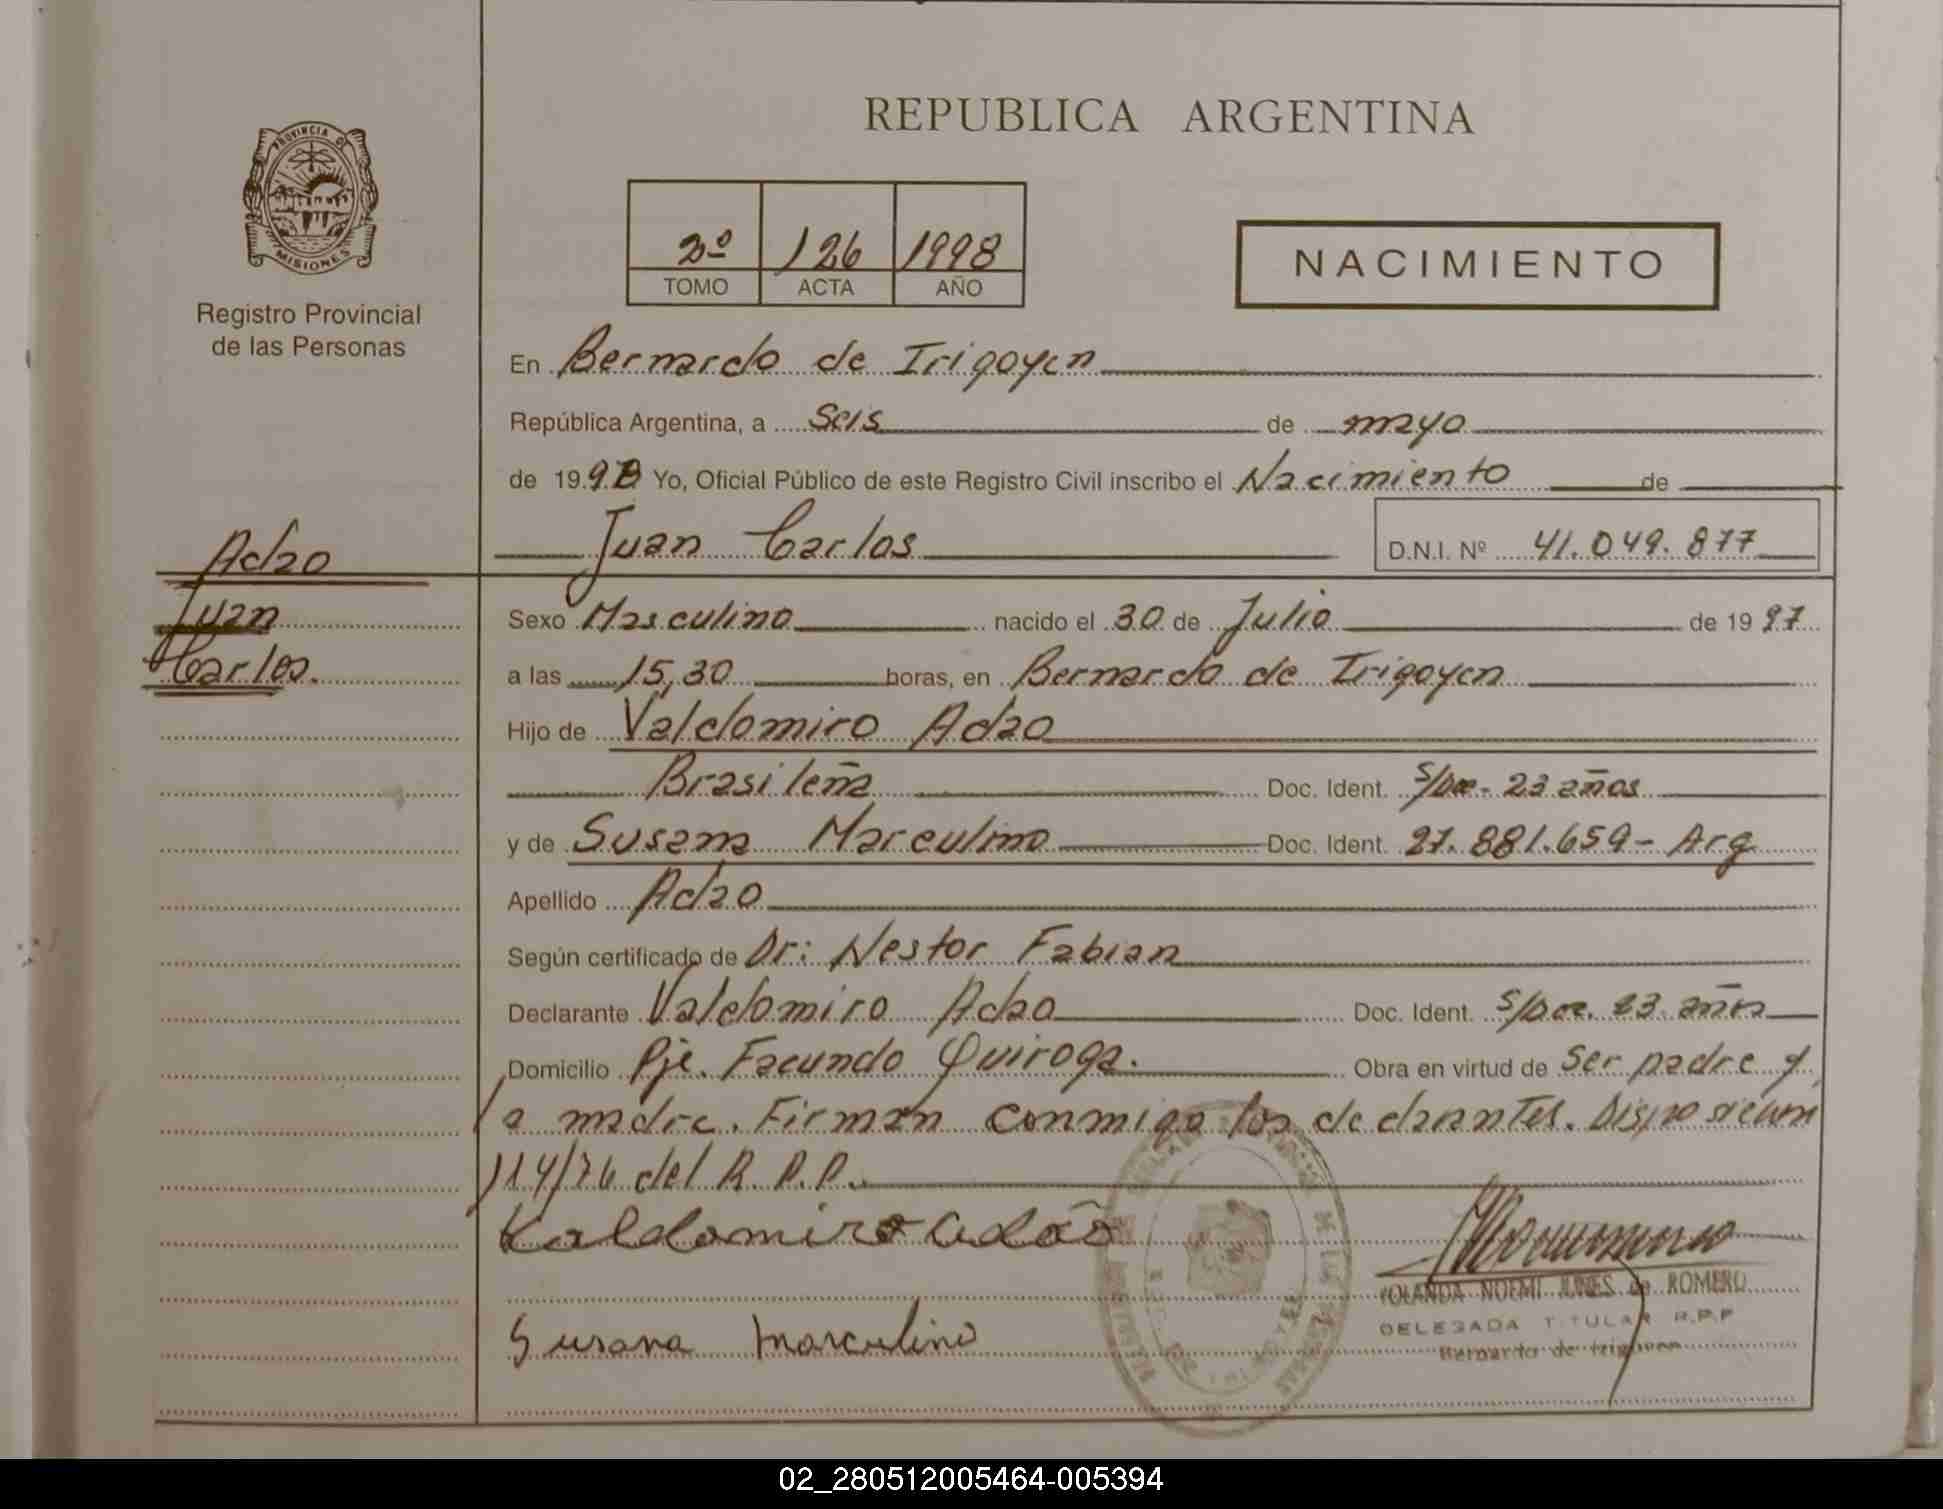 PROVINCIA DE
MISIONES
Registro Provincial
de las Personas
REPUBLICA ARGENTINA
2º 126 1998
TOMO ACTA AÑO
NACIMIENTO
En Bernardo de Irigoyen
República Argentina, a Seis de mayo
de 1998 Yo, Oficial Público de este Registro Civil inscribo el Nacimiento de
Juan Carlos D.N.I. Nº 41.049.877
Adao
Juan
Carlos.
Sexo Masculino nacido el 30 de Julio de 1997
a las 15,30 horas, en Bernardo de Irigoyen
Hijo de Valdomiro Adao
Brasileña Doc. Ident. S/Doc- 23 años
y de Susana Marculino Doc. Ident. 27.881.659- Arg
Apellido Adao
Según certificado de Dr: Nestor Fabian
Declarante Valdomiro Adao Doc. Ident. S/Doc. 23 años
Domicilio Pje. Facundo Quiroga. Obra en virtud de Ser padre y
la madre. Firman conmigo los declarantes. Disposicion
114/76 del R.P.P.
Valdomiro Adão
Susana Marculino
YOLANDA NOEMI de ROMERO
DELEGADA TITULAR R.P.P
Bernardo de Irigoyen
02_280512005464-005394